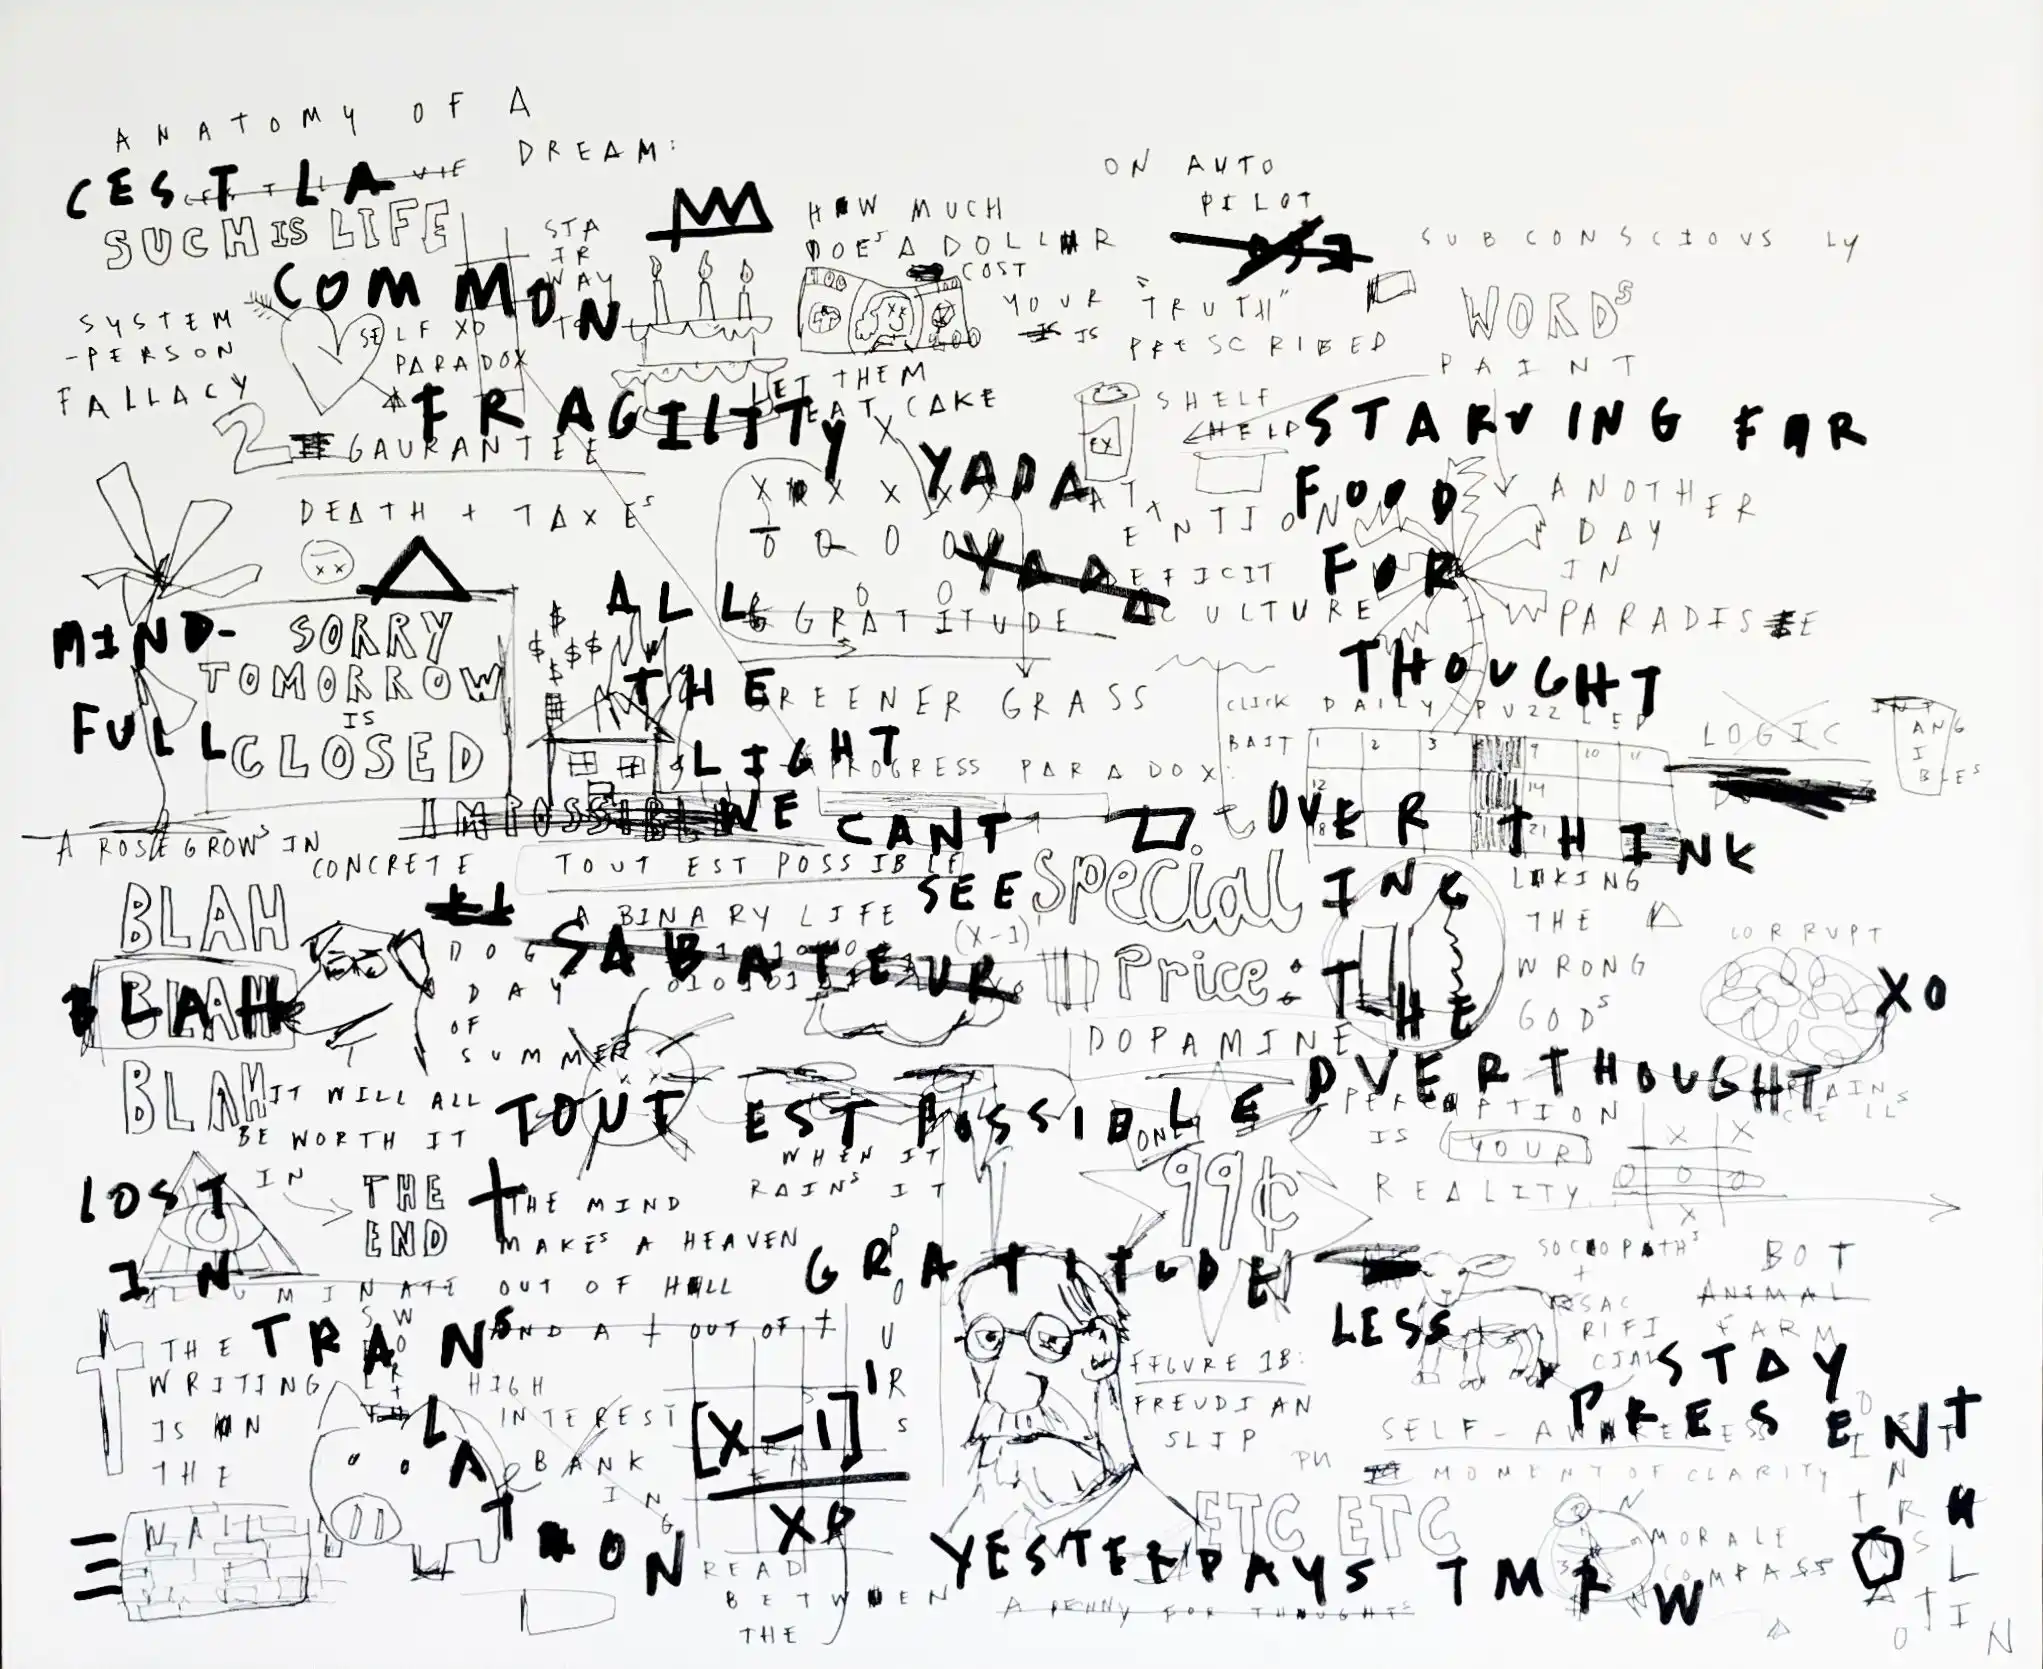 ANATOMY OF A
DREAM:
CEST LA
VIE
SUCH IS LIFE
COMMON
STA
IR
WAY
TO
HOW MUCH
DOES A DOLLAR
COST
ON AUTO
PILOT
SUBCONSCIOUSLY
YOUR "TRUTH"
IS
PRESCRIBED
WORDS
PAINT
SYSTEM
-PERSON
FALLACY
SELF XO
PARADOX
FRAGILITY
LET THEM
EAT CAKE
SHELF
HELP
EX
STARVING FOR
FOOD
FOR
THOUGHT
2
GAURANTEE
DEATH + TAXES
YADA
YADA
ATTENTION
DEFICIT
CULTURE
ANOTHER
DAY
IN
PARADISE
MIND-
FULL
SORRY
TOMORROW
IS
CLOSED
$
$ $$$
$
ALL
THE
LIGHT
WE CANT
SEE
GRATITUDE
GREENER GRASS
PROGRESS PARADOX:
CLICK
BAIT
DAILY PUZZLE
1 2 3 9 10 11
12 14
18 21
LOGIC
INTANGIBLES
OVERTHINK
ING
THE
OVERTHOUGHT
IMPOSSIBLE
A ROSE GROWS IN
CONCRETE
TOUT EST POSSIBLE
A BINARY LIFE
(X-1)
BLAH
BLAH
BLAH
DOG
DAY
OF
SUMMER
SABATEUR
Special
Price:
DOPAMINE
ONLY
99¢
LIKING
THE
WRONG
GODS
CORRUPT
XO
BRAINS
CELLS
IT WILL ALL
BE WORTH IT
IN
THE
END
TOUT EST POSSIBLE
WHEN IT
RAINS IT
POURS
PERCEPTION
IS YOUR
REALITY
LOST
IN
TRANS
LAT
ION
ILLUMINATE
THE MIND
MAKES A HEAVEN
OUT OF HELL
AND A † OUT OF †
GRATITUDE
LESS
SOCIOPATHS
+
SAC
RIFI
CIAL
BOT
ANIMAL
FARM
STAY
PRESENT
THE
WRITING
IS ON
THE
WALL
SELF
WORTH
HIGH
INTEREST
BANK
ING
[X-1]
XO
READ
BETWEEN
THE
FIGURE 1B:
FREUDIAN
SLIP
SELF-AWARENESS
MOMENT OF CLARITY
ETC ETC
YESTERDAYS TMRW
A PENNY FOR THOUGHTS
MORALE
COMPASS
N